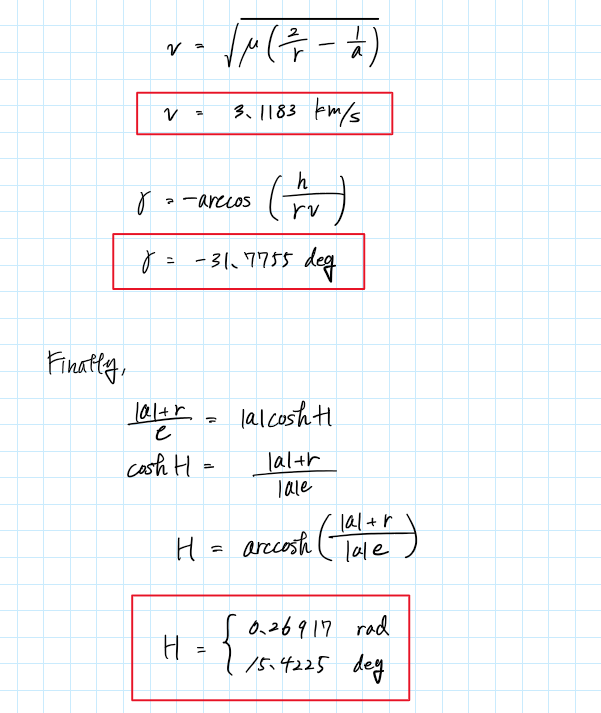 v = √(μ(2/r − 1/a))
v = 3.1183 km/s
γ = −arccos (h/rv)
γ = −31.7755 deg
Finally,
|a|+r/e = |a|cosh H
cosh H = |a|+r/|a|e
H = arccosh (|a|+r/|a|e)
H = { 0.26917 rad
15.4225 deg